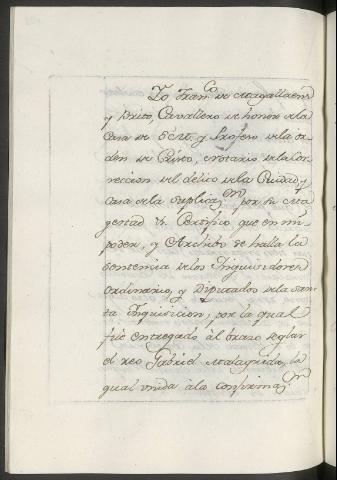 Yo Fran.co de Magallaens
y Brito, Cavallero de honor de la
Casa de S. Mt. y Profeso de la or-
den de Cristo, Notario de la Cor-
reccion del delito de la Ciudad, y
Casa de la Suplicaz.on por Su Ma-
gestad & Certifico, que en mi
poder, y Archivo se halla la
Sentencia de los Inquisidores
ordinario, y Diputados de la San-
ta Inquisicion, por la qual
fue entregado al brazo seglar
el reo Gabriel Malagrida, la
qual unida a la confirmaz.on